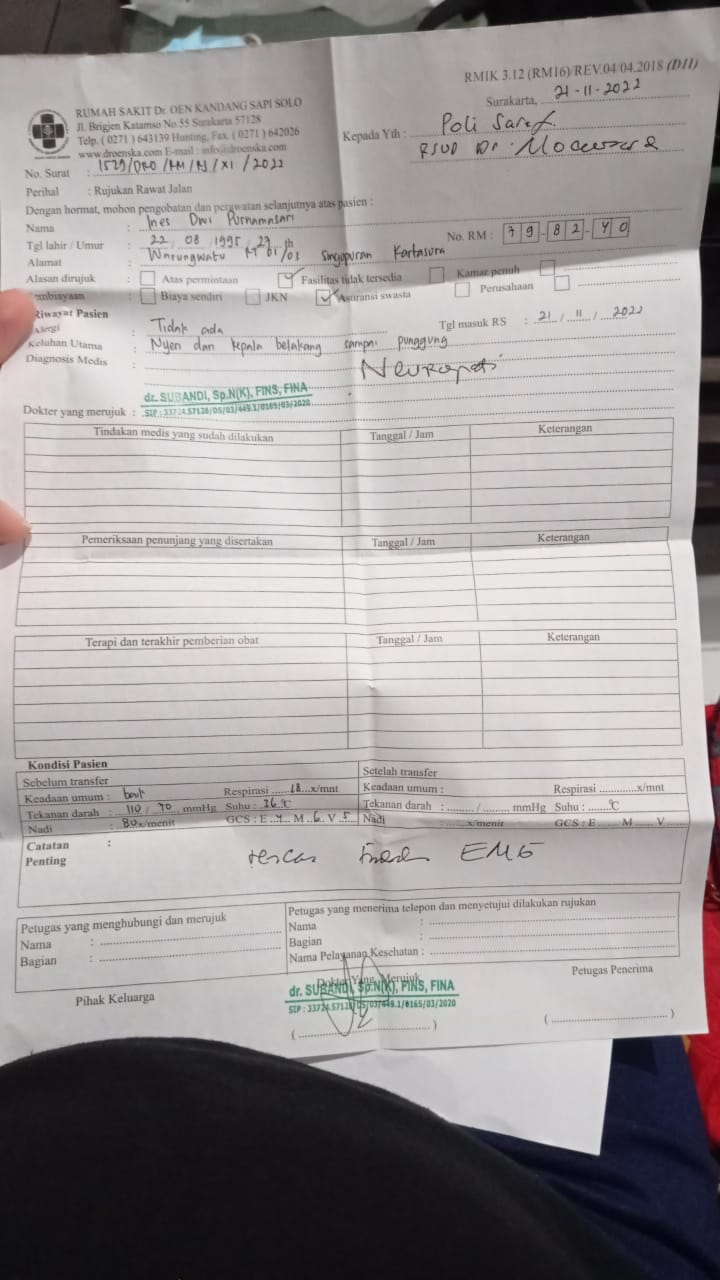 RMIK 3.12 (RM16)/REV.04/04.2018 (D11)
Surakarta, 21-11-2022
RUMAH SAKIT Dr. OEN KANDANG SAPI SOLO
Jl. Brigjen Katamso No.55 Surakarta 57128
Telp. ( 0271 ) 643139 Hunting, Fax. ( 0271 ) 642026
www.droenska.com E-mail : info@droenska.com
Kepada Yth : Poli Saraf
RSUD Dr. Moewardi
No. Surat : 1529/DRO/RM/RJ/XI/2022
Perihal : Rujukan Rawat Jalan
Dengan hormat, mohon pengobatan dan perawatan selanjutnya atas pasien :
Nama : Ines Dwi Purnamasari
No. RM : 79-82-40
Tgl lahir / Umur : 22 / 08 / 1995 / 27 th
Alamat : Warungwatu RT 01/03 Singopuran Kartasura
Alasan dirujuk Atas permintaan Fasilitas tidak tersedia Kamar penuh
Pembiayaan Biaya sendiri JKN Asuransi swasta Perusahaan
Riwayat Pasien
Alergi : Tidak ada
Tgl masuk RS : 21 / 11 / 2022
Keluhan Utama : Nyeri dari kepala belakang sampai punggung
Diagnosis Medis : Neuropati
dr. SUBANDI, Sp.N(K), FINS, FINA
Dokter yang merujuk : SIP : 33724.57128/DS/03/449.1/0165/03/2020
Tindakan medis yang sudah dilakukan Tanggal / Jam Keterangan
Pemeriksaan penunjang yang disertakan Tanggal / Jam Keterangan
Terapi dan terakhir pemberian obat Tanggal / Jam Keterangan
Kondisi Pasien
Sebelum transfer Setelah transfer
Keadaan umum : baik Respirasi 18 x/mnt Keadaan umum : Respirasi x/mnt
Tekanan darah : 110 / 70 mmHg Suhu : 36 °C Tekanan darah : / mmHg Suhu : °C
Nadi : 80 x/menit GCS : E 4 M 6 V 5 Nadi : x/menit GCS : E M V
Catatan :
Penting
EMG
Petugas yang menghubungi dan merujuk Petugas yang menerima telepon dan menyetujui dilakukan rujukan
Nama : Nama :
Bagian : Bagian :
Nama Pelayanan Kesehatan :
Pihak Keluarga Dokter Yang Merujuk Petugas Penerima
dr. SUBANDI, Sp.N(K), FINS, FINA
SIP : 33724.57128/DS/03/449.1/0165/03/2020
( ) ( )